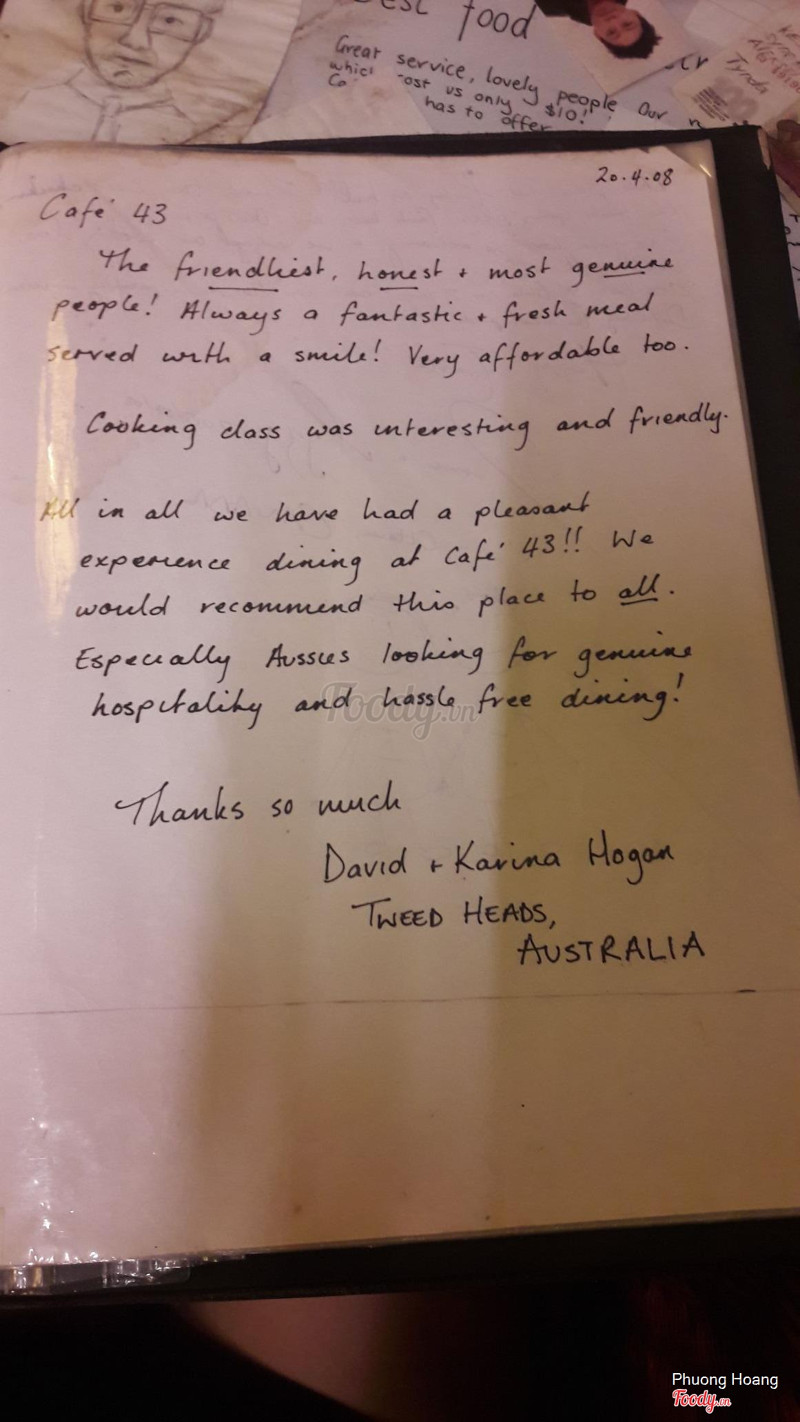 Best food
Great service, lovely people. Our
which cost us only $10!
has to offer
Tynda
20.4.08
Café 43
The friendliest, honest + most genuine
people! Always a fantastic + fresh meal
served with a smile! Very affordable too.
Cooking class was interesting and friendly.
All in all we have had a pleasant
experience dining at Café 43!! We
would recommend this place to all.
Especially Aussies looking for genuine
hospitality and hassle free dining!
Foody.vn
Thanks so much
David + Karina Hogan
TWEED HEADS,
AUSTRALIA
Phuong Hoang
Foody.vn